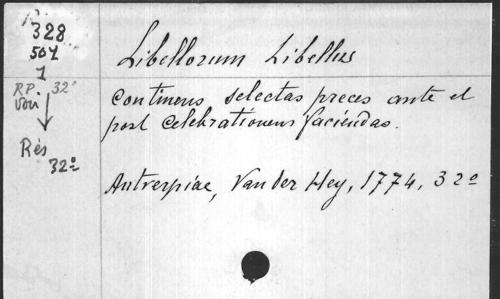 328
504
1
R.P. 32°
Vari
Rés
32º
Libellorum Libellus
continens selectas preces ante et
post celebrationem faciendas.
Antverpiae, Van der Hey, 1774, 32º